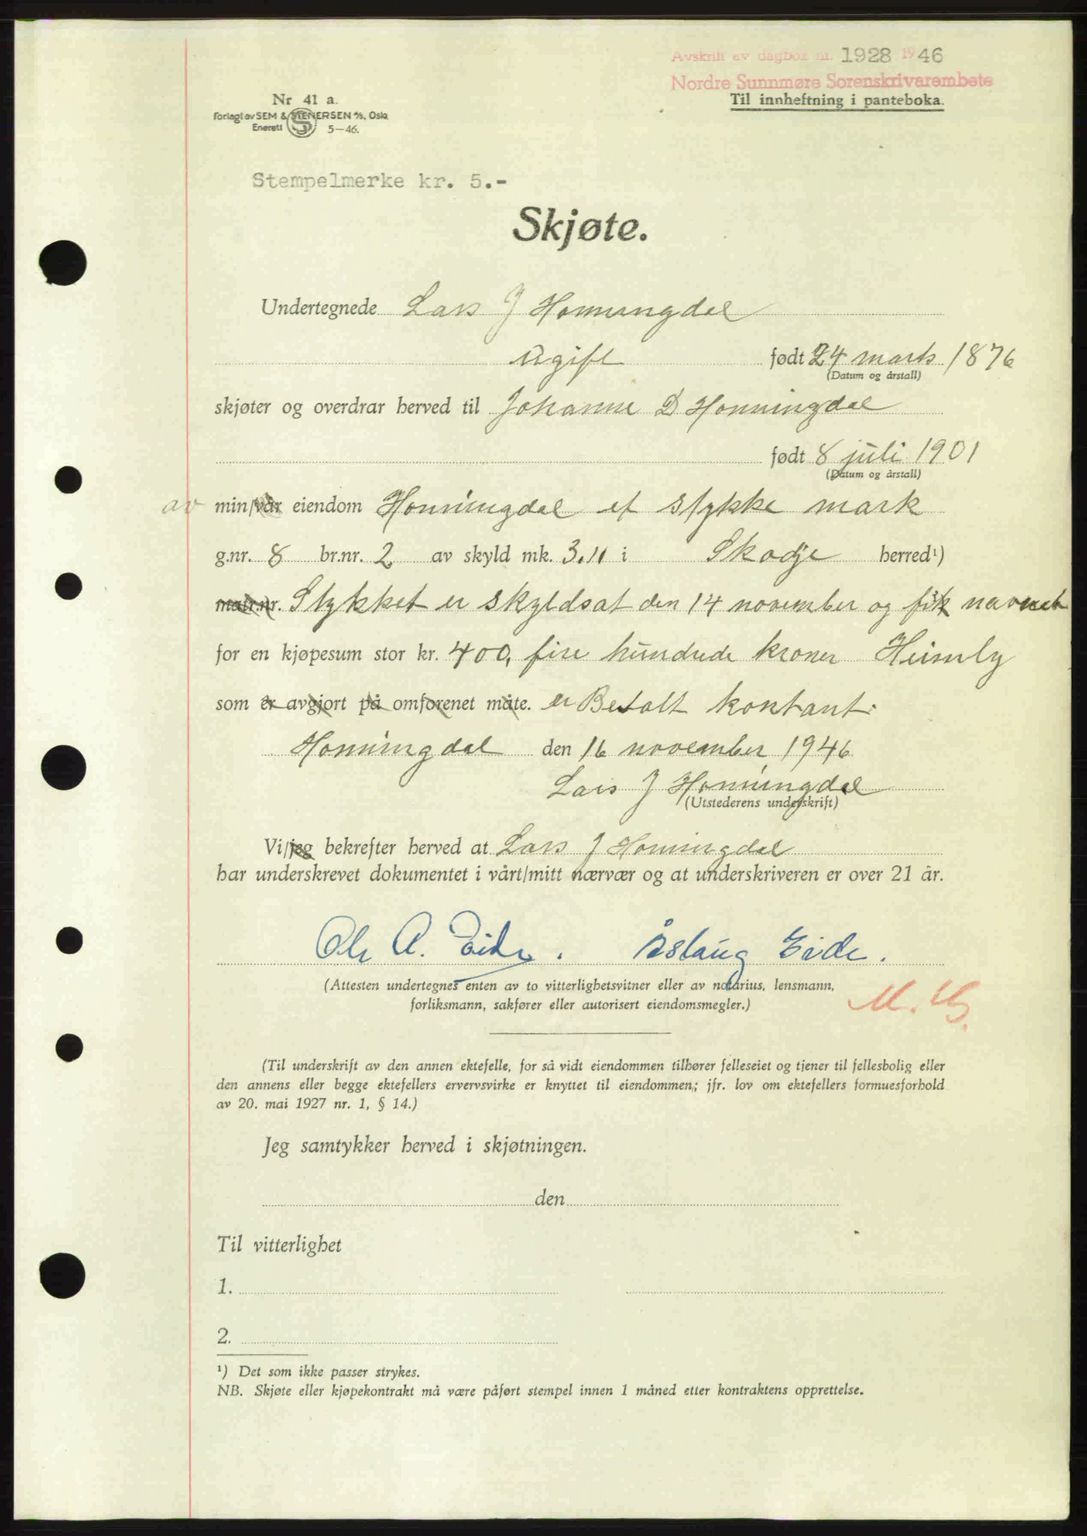 Avskrift av dagbok nr. 1928 1946
Nordre Sunnmøre Sorenskrivarembete
Til innheftning i panteboka.
Nr 41 a.
Forlagt av SEM & STENERSEN A/S, Oslo
Enerett S 5-46.
Stempelmerke kr. 5.-
Skjøte.
Undertegnede Lars J Honningdal
Ugift født 24 mars 1876
(Datum og årstall)
skjøter og overdrar herved til Johanne D Honningdal
født 8 juli 1901
(Datum og årstall)
av min/vår eiendom Honningdal et stykke mark
g.nr. 8 br.nr. 2 av skyld mk. 3.11 i Skodje herred¹)
matr.nr. Stykket er skyldsat den 14 november og fik navnet
for en kjøpesum stor kr. 400, fire hundrede kroner Heimly
som er avgjort på omforenet måte. er Betalt kontant.
Honningdal den 16 november 1946
Lars J Honningdal
(Utstederens underskrift)
Vi/jeg bekrefter herved at Lars J Honningdal
har underskrevet dokumentet i vårt/mitt nærvær og at underskriveren er over 21 år.
Ole A. Eide. Åslaug Eide.
(Attesten undertegnes enten av to vitterlighetsvitner eller av notarius, lensmann,
forliksmann, sakfører eller autorisert eiendomsmegler.)
(Til underskrift av den annen ektefelle, for så vidt eiendommen tilhører felleseiet og tjener til fellesbolig eller
den annens eller begge ektefellers ervervsvirke er knyttet til eiendommen; jfr. lov om ektefellers formuesforhold
av 20. mai 1927 nr. 1, § 14.)
Jeg samtykker herved i skjøtningen.
den
Til vitterlighet
1.
2.
¹) Det som ikke passer strykes.
NB. Skjøte eller kjøpekontrakt må være påført stempel innen 1 måned etter kontraktens opprettelse.